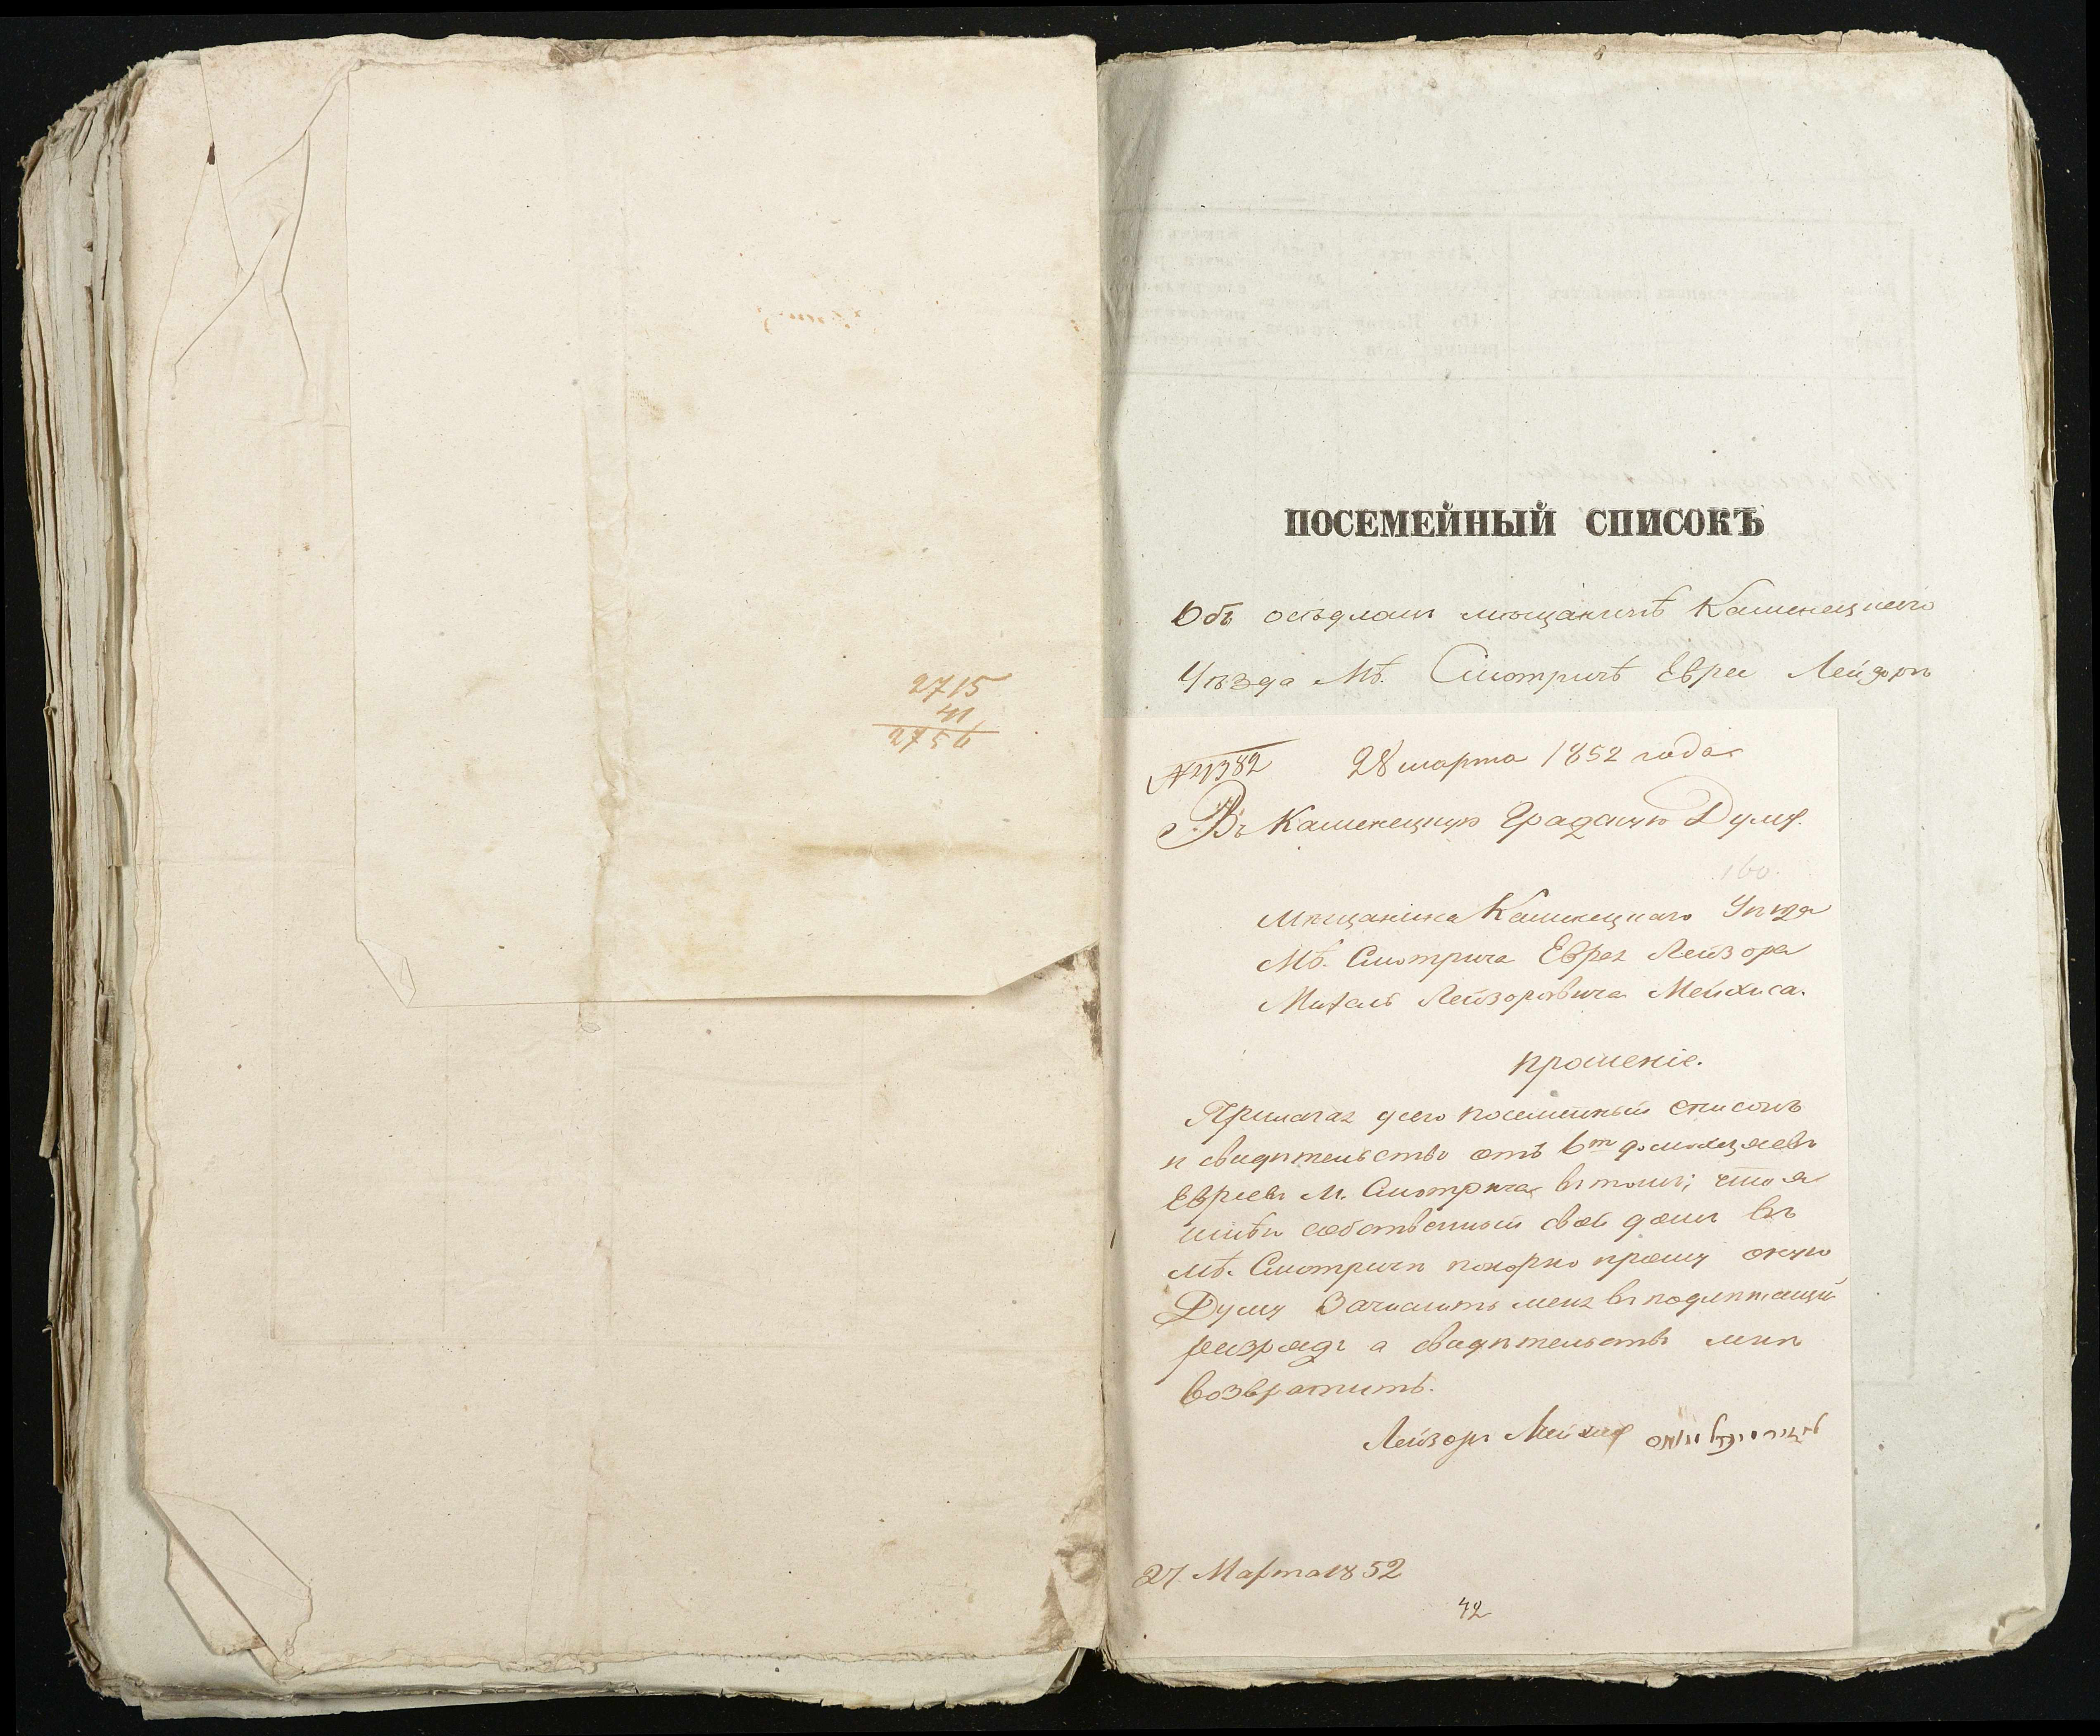 2715
41
2756
ПОСЕМЕЙНЫЙ СПИСОКЪ
Объ осѣдломъ мѣщанинѣ Каменецкаго
Уѣзда Мѣ. Смотричѣ Еврея Лейзоръ
№4382 28 марта 1852 года
Въ Каменецкую Градскую Думу.
160.
Мѣщанина Каменецкаго Уѣзда
Мѣ. Смотрича Еврея Лейзора
Лейзоровича Мейхиса.
прошеніе.
Прилагая у сего посемейный списокъ
и свидѣтельство отъ 6т домохозяевъ
Евреевъ М. Смотрича въ томъ; что я
имѣю собственный свой домъ въ
мѣ. Смотричѣ покорно прошу оную
Думу Зачислить меня въ подлѣжащій
разрядъ а свидѣтельство мнѣ
возвратить.
Лейзоръ
27 Марта 1852
42